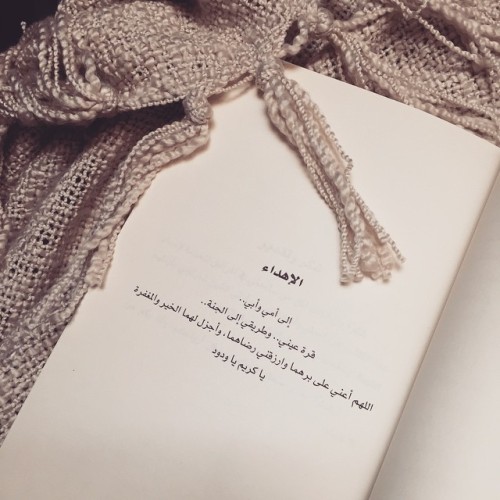 الإهداء
إلى أمي وأبي..
قرة عيني.. وطريقي إلى الجنة..
اللهم أعني على برهما وارزقني رضاهما، وأجزل لهما الخير والمغفرة
يا كريم يا ودود